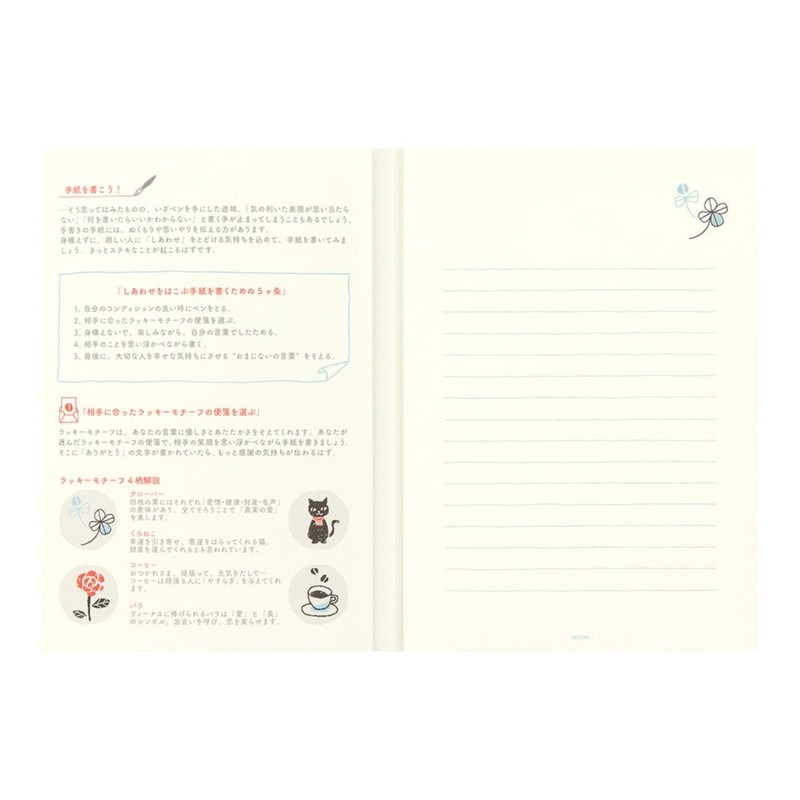 手紙を書こう！
…そう思ってはみたものの、いざペンを手にした途端、「気の利いた表現が思い当たら
ない」「何を書いたらいいかわからない」と書く手が止まってしまうこともあるでしょう。
手書きの手紙には、ぬくもりや思いやりを伝える力があります。
身構えずに、親しい人に「しあわせ」をとどける気持ちを込めて、手紙を書いてみま
しょう。きっとステキなことが起こるはずです。
「しあわせをはこぶ手紙を書くための５ヶ条」
1, 自分のコンディションの良い時にペンをとる。
2, 相手に合ったラッキーモチーフの便箋を選ぶ。
3, 身構えないで、楽しみながら、自分の言葉でしたためる。
4, 相手のことを思い浮かべながら書く。
5, 最後に、大切な人を幸せな気持ちにさせる“おまじないの言葉”をそえる。
「相手に合ったラッキーモチーフの便箋を選ぶ」
ラッキーモチーフは、あなたの言葉に優しさとあたたかさをそえてくれます。あなたが
選んだラッキーモチーフの便箋で、相手の笑顔を思い浮かべながら手紙を書きましょう。
そこに「ありがとう」の文字が書かれていたら、もっと感謝の気持ちが伝わるはず。
ラッキーモチーフ４柄解説
クローバー
四枚の葉にはそれぞれ「愛情・健康・財産・名声」
の意味があり、全てそろうことで「真実の愛」
を表します。
くろねこ
幸運を引き寄せ、悪運をはらってくれる猫。
財産を運んでくれるとも言われています。
コーヒー
おつかれさま、頑張って、元気をだして…
コーヒーは頑張る人に「やすらぎ」を与えてくれ
ます。
バラ
ヴィーナスに捧げられるバラは「愛」と「美」
のシンボル。出会いを呼び、恋を実らせます。